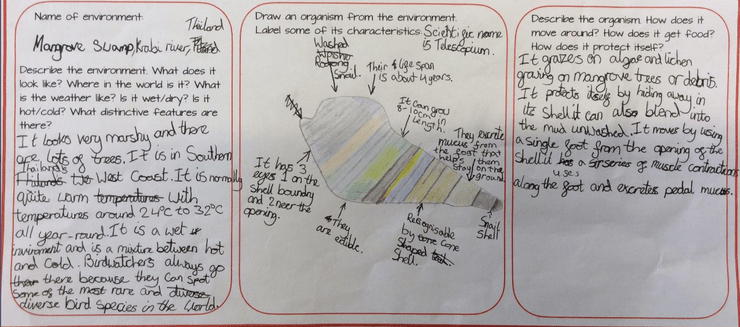 Name of environment
Thailand
Mangrove Swamp, Krabi river,
Describe the environment. What does it
look like? Where in the world is it? What
is the weather like? Is it wet/dry? Is it
hot/cold? What distinctive features are
there?
It looks very marshy and there
are lots of trees. It is in Southern
Thailand's
West Coast. It is normally
quite warm temperatures with
temperatures around 24°C to 32°C
all year-round. It is a wet
environment and is a mixture between hot
and cold. Birdwatchers always go
there because they can spot
some of the most rare and diverse
diverse bird species in the world.
Draw an organism from the environment.
Label some of its characteristics.
Scientific name
is Telescopium.
Washed
Snail.
Their life span
is about 4 years.
It can grow
8-10cm in
length.
They excrete
mucus from
the foot that
helps them
stay on the
ground
It has 3
eyes 1 on the
shell boundry
and 2 near the
opening.
They
are edible.
Recognisable
by cone
shaped
shell.
Snail
shell
Describe the organism. How does it
move around? How does it get food?
How does it protect itself?
It grazes on algae and lichen
growing on mangrove trees or debris.
It protects itself by hiding away in
its shell it can also blend into
the mud unwashed. It moves by using
a single foot from the opening of the
shell it has a series of muscle contractions
uses
along the foot and excretes pedal mucus.